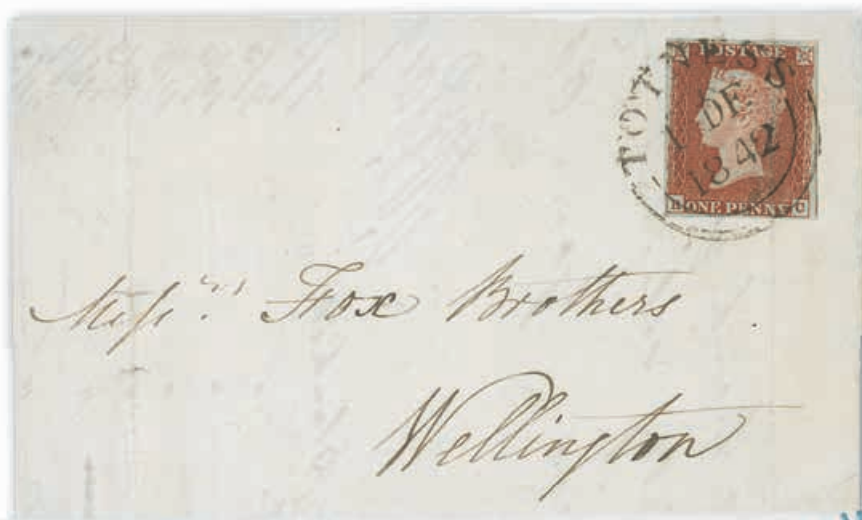 POSTAGE
TOTNESS
1 DE
1842
ONE PENNY
C
Messrs. Fox Brothers
Wellington